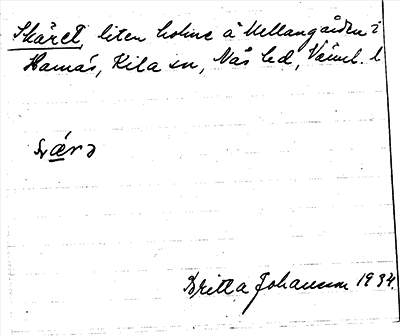 Skäret, liten holme å Mellangården i
Hamås, Kila sn, Näs hd, Värml. l
Britta Johansson 1934.